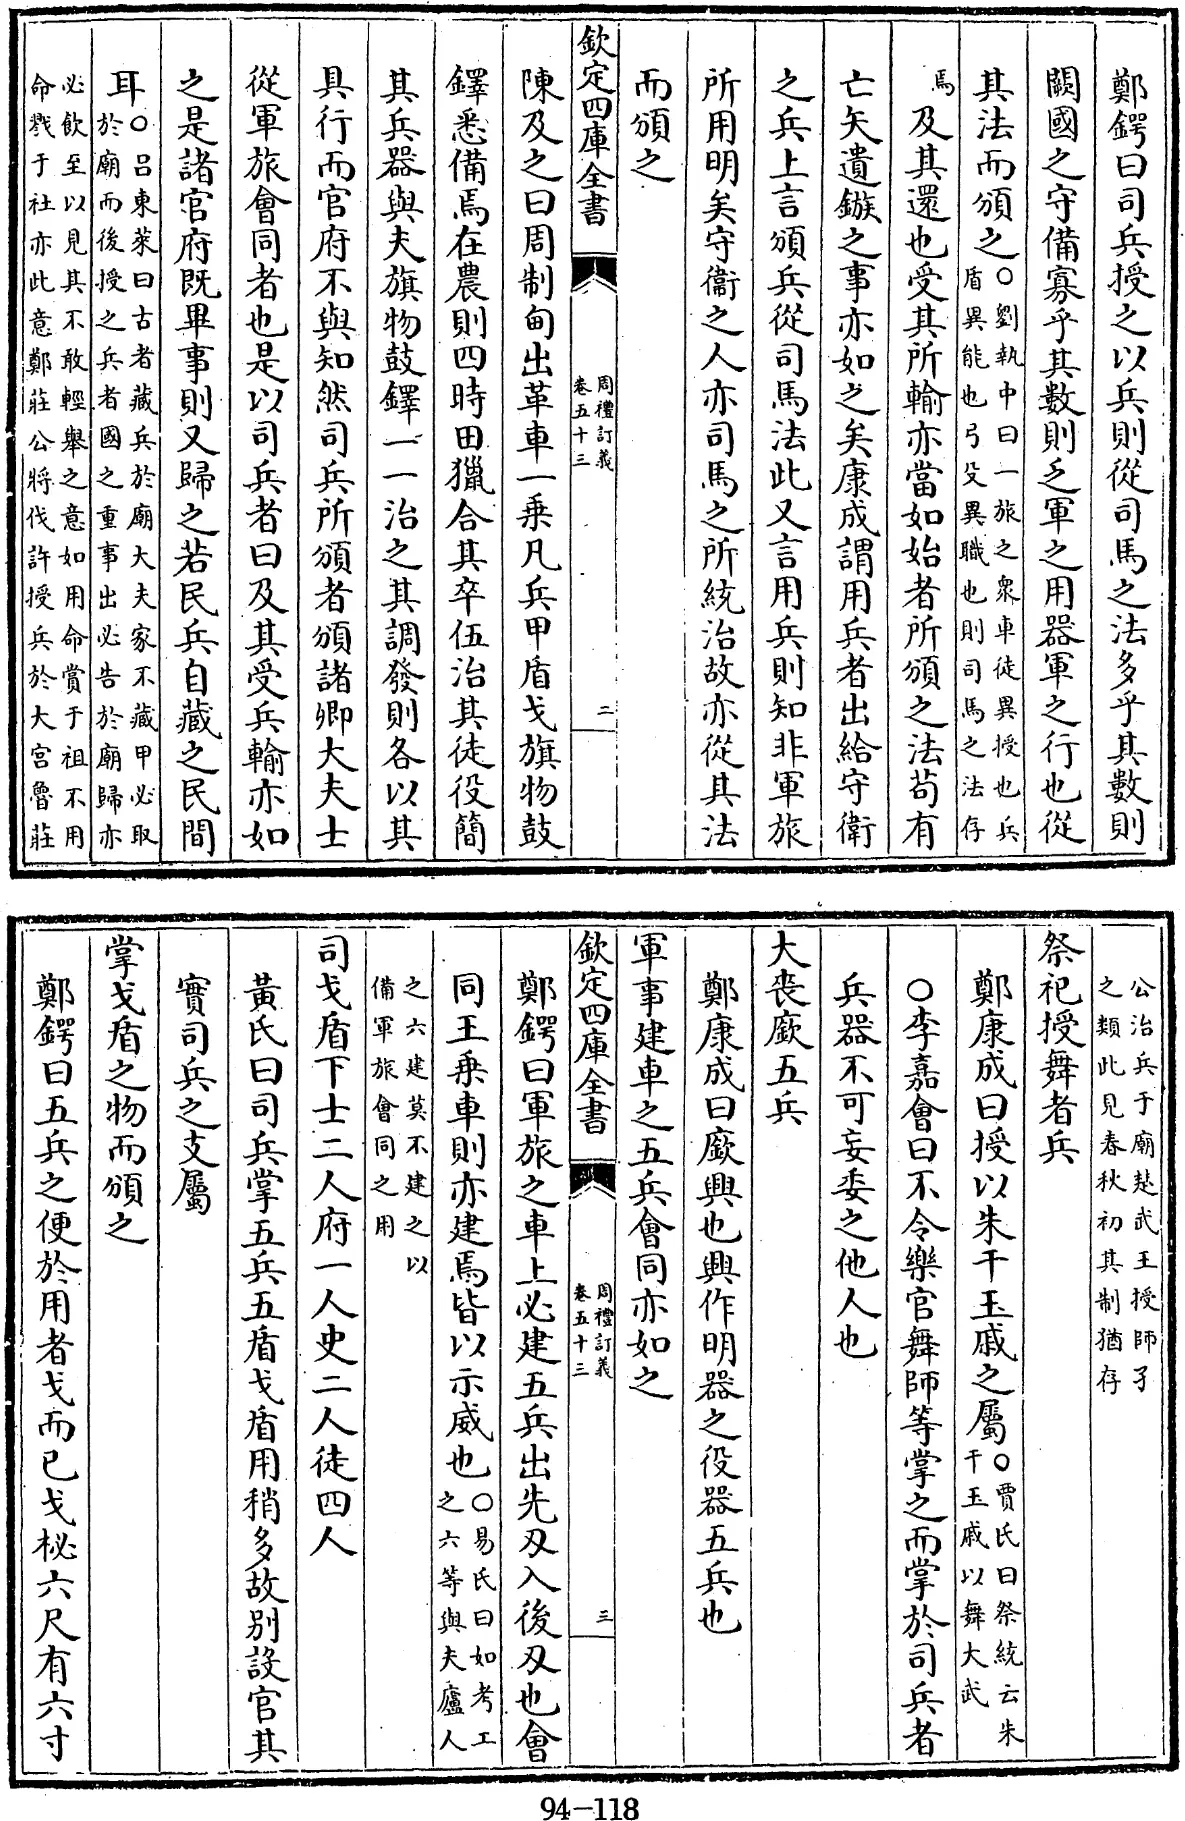 鄭鍔曰司兵授之以兵則從司馬之法多乎其數則
闕國之守備寡乎其數則乏軍之用器軍之行也從
其法而頒之○劉執中曰一旅之衆車徒異授也兵
盾異能也弓殳異職也則司馬之法存
焉及其還也受其所輸亦當如始者所頒之法苟有
亡矢遺鏃之事亦如之矣康成謂用兵者出給守衛
之兵上言頒兵從司馬法此又言用兵則知非軍旅
所用明矣守衞之人亦司馬之所統治故亦從其法
而頒之
欽定四庫全書
周禮訂義
卷五十三
二
陳及之曰周制甸出革車一乗凡兵甲盾戈旗物鼓
鐸悉備焉在農則四時田獵合其卒伍治其徒役簡
其兵器與夫旗物鼓鐸一一治之其調發則各以其
具行而官府不與知然司兵所頒者頒諸卿大夫士
從軍旅會同者也是以司兵者曰及其受兵輸亦如
之是諸官府既畢事則又歸之若民兵自藏之民間
耳○呂東萊曰古者藏兵於廟大夫家不藏甲必取
於廟而後授之兵者國之重事出必告於廟歸亦
必飲至以見其不敢輕舉之意如用命賞于祖不用
命戮于社亦此意鄭莊公將伐許授兵於大宫魯莊
公治兵于廟楚武王授師孑
之類此見春秋初其制猶存
祭祀授舞者兵
鄭康成曰授以朱干玉戚之屬○賈氏曰祭統云朱
干玉戚以舞大武
○李嘉會曰不令樂官舞師等掌之而掌於司兵者
兵器不可妄委之他人也
大喪廞五兵
鄭康成曰廞興也興作明器之役器五兵也
軍事建車之五兵會同亦如之
欽定四庫全書
周禮訂義
卷五十三
三
鄭鍔曰軍旅之車上必建五兵出先刄入後刄也會
同王乗車則亦建焉皆以示威也○易氏曰如考工
之六等與夫廬人
之六建莫不建之以
備軍旅會同之用
司戈盾下士二人府一人史二人徒四人
黃氏曰司兵掌五兵五盾戈盾用稍多故别設官其
實司兵之支屬
掌戈盾之物而頒之
鄭鍔曰五兵之便於用者戈而已戈柲六尺有六寸
94-118